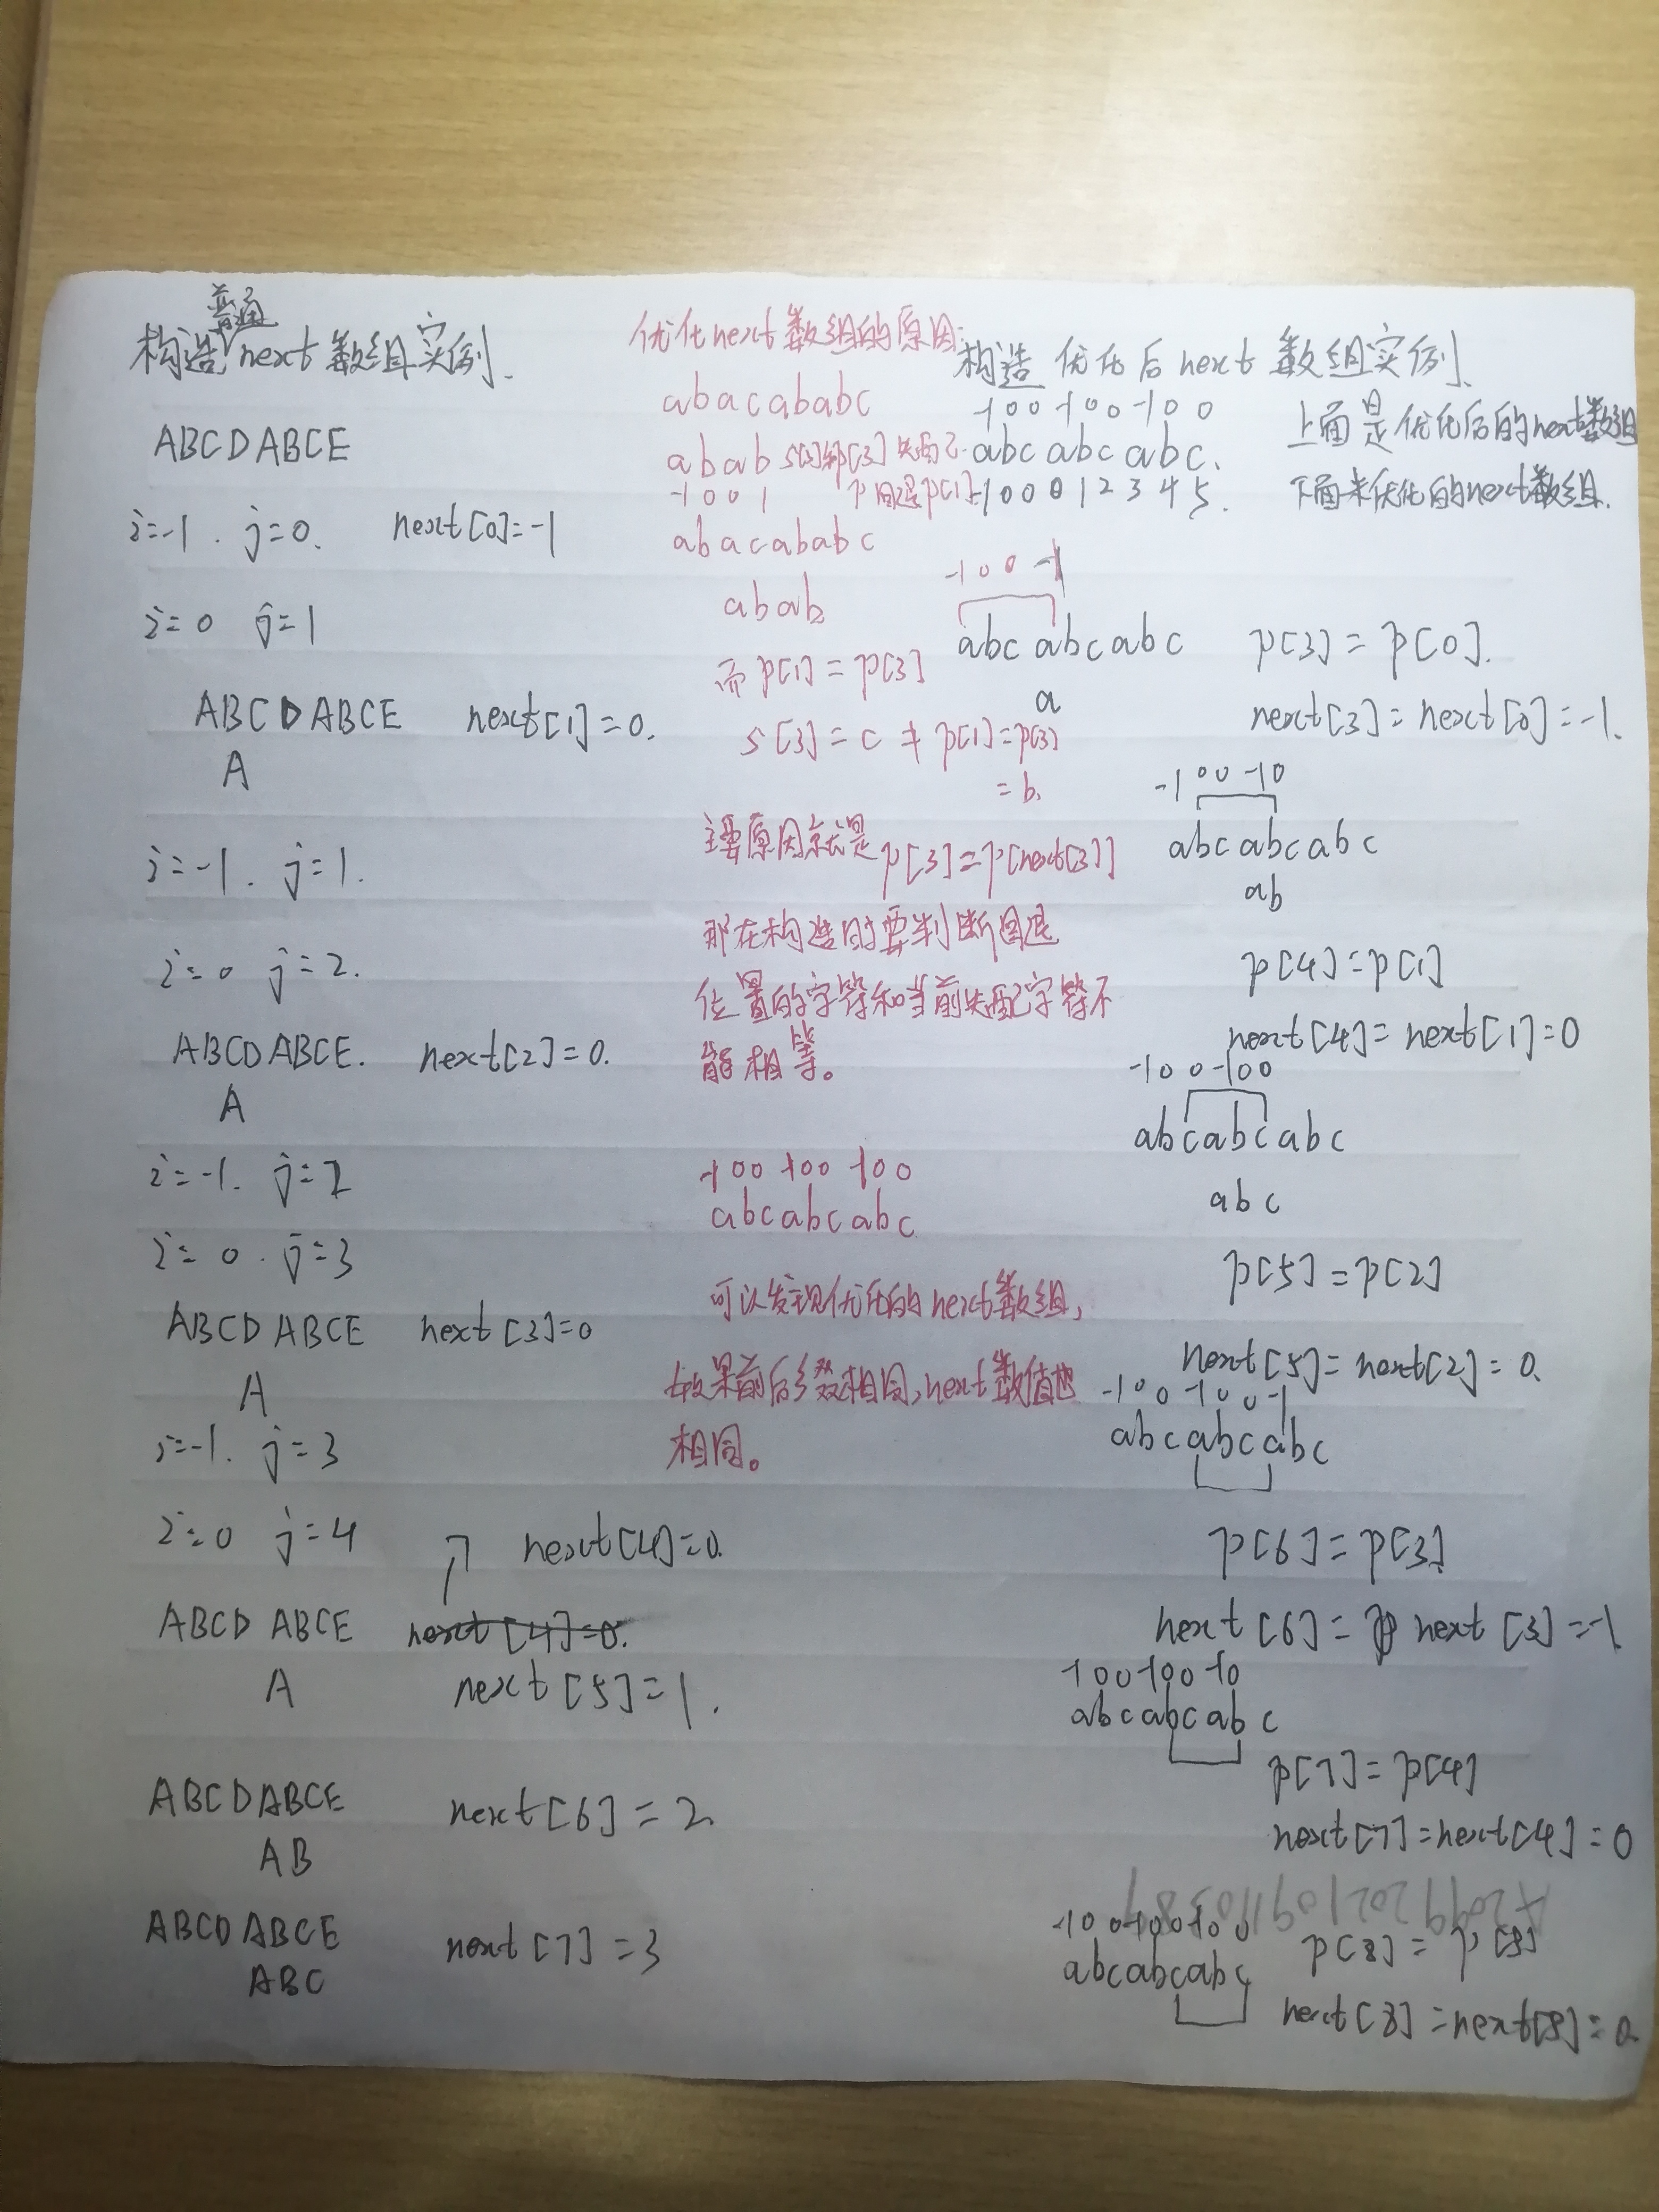 构造普通next数组实例.
ABCDABCE
i=-1. j=0. next[0]=-1
i=0 j=1
ABCDABCE next[1]=0.
A
i=-1. j=1.
i=0 j=2.
ABCDABCE. next[2]=0.
A
i=-1. j=2
i=0. j=3
ABCDABCE next[3]=0
A
i=-1. j=3
i=0 j=4 next[4]=0.
ABCDABCE next[4]=0.
A next[5]=1.
ABCDABCE next[6]=2
AB
ABCDABCE next[7]=3
ABC
优化next数组的原因:
abacababc
abab s[3]和p[3]失配了.
-1001 p回退p[1]
abacababc
abab
而p[1]=p[3]
s[3]=c≠p[1]=p[3]
=b.
主要原因就是p[3]=p[next[3]]
那在构造时要判断回退
位置的字符和当前失配字符不
能相等。
-100-100-100
abcabcabc
可以发现优化的next数组,
如果前后缀相同,next数值也
相同。
构造优化后next数组实例.
-100-100-100 上面是优化后的next数组
abcabcabc.
-100012345. 下面未优化的next数组.
-100-1
abcabcabc p[3]=p[0].
a
next[3]=next[0]=-1.
-100-10
abcabcabc
ab
p[4]=p[1]
next[4]=next[1]=0
-100-100
abcabcabc
abc
p[5]=p[2]
next[5]=next[2]=0.
-100-100-1
abcabcabc
p[6]=p[3]
next[6]=next[3]=-1
-100-100-10
abcabcabc
p[7]=p[4]
next[7]=next[4]=0
-100-100-100
abcabcabc p[8]=p[5]
next[8]=next[5]=0